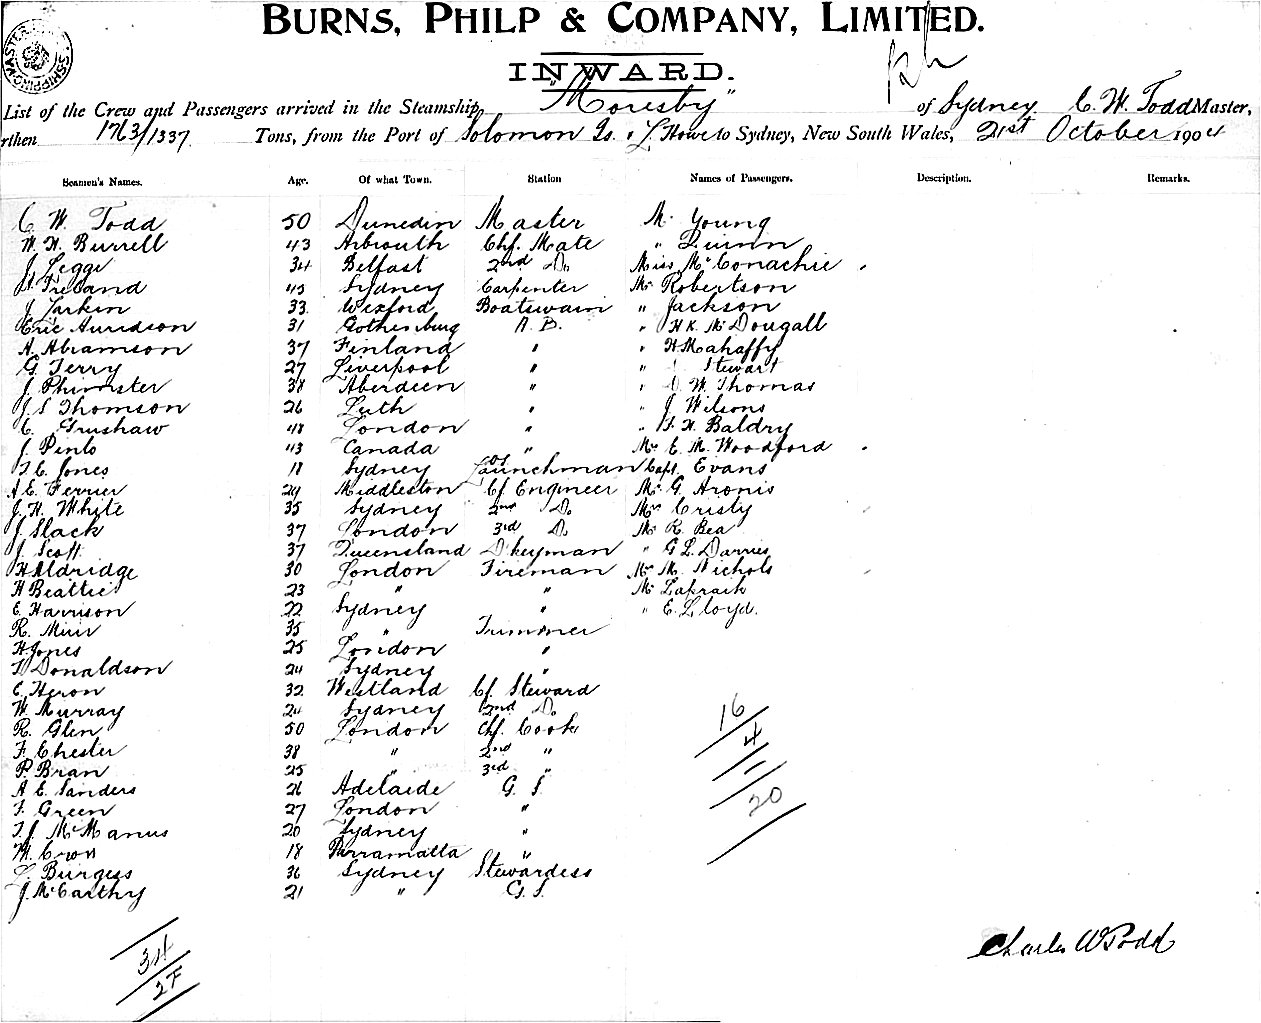 BURNS, PHILP & COMPANY, LIMITED.
INWARD.
List of the Crew and Passengers arrived in the Steamship "Moresby" of Sydney C. W. Todd Master,
rthen 1763/1337 Tons, from the Port of Solomon Is. & L. Howe to Sydney, New South Wales, 21st October 1904
Seamen's Names. Age. Of what Town. Station Names of Passengers. Description. Remarks.
C W Todd 50 Dunedin Master Mr Young
W. H. Burrell 43 Arbroath Chf. Mate " Quinn
J. Legge 34 Belfast 2nd Do. Miss McConachie
Ireland 45 Sydney Carpenter Mr Robertson
J. Larkin 33 Wexford Boatswain " Jackson
Eric 31 Gothenburg A. B. " H K McDougall
A. Abramson 37 Finland " " H Mahaffy
G. Terry 27 Liverpool " " Stewart
J. Phimister 38 Aberdeen " " W. Thomas
J. S Thomson 26 Leith " " J Wilsons
C. Grushaw 48 London " " F. H. Baldry
J. Pinto 43 Canada " Mrs E. M. Woodford
T. C. Jones 18 Sydney Launchman Capt. Evans
A E. Ferrier 24 Middleston Cf Engineer Mr G Aronis
J. H. White 35 Sydney 2nd Do. Mrs Cristy
J. Slack 37 London 3rd Do. Mr R. Bea
J. Scott 37 Queensland D'keyman " G L. Davies
H Aldridge 30 London Fireman Mrs M. Nichols
H Beattie 23 " " Mr Lapraik
E. Harrison 22 Sydney " " E. Lloyd.
R. Muir 35 " Trimmer
H. Jones 25 London "
Donaldson 24 Sydney "
E. Heron 32 Westland Cf. Steward
W. Murray 24 Sydney 2nd Do.
R. Glen 50 London Chf. Cook
F. Chester 38 " 2nd "
P. Bran 25 " 3rd "
A E. Sanders 26 Adelaide G. S.
F. Green 27 London "
T. J. McManus 20 Sydney "
W. Cron 18 Parramatta "
L. Burgess 36 Sydney Stewardess
J. McCarthy 21 " G. S.
16
4
20
34
2F
Charles W Todd